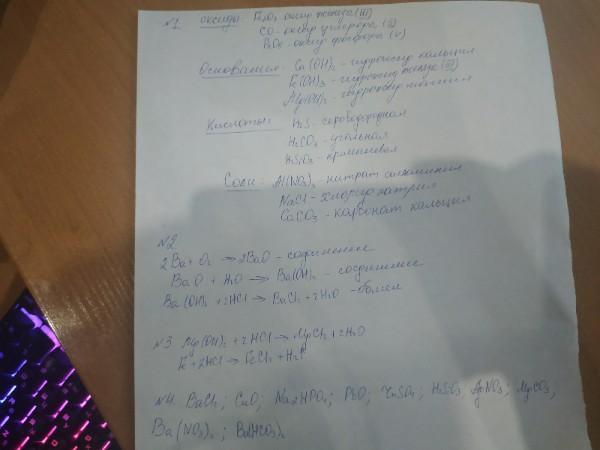 №1 Оксиды: Fe₂O₃ оксид железа (III)
CO - оксид углерода (II)
P₂O₅ - оксид фосфора (V)
Основания: Ca(OH)₂ - гидроксид кальция
Fe(OH)₃ - гидроксид железа (III)
Mg(OH)₂ - гидроксид магния
Кислоты: H₂S - сероводородная
H₂CO₃ - угольная
H₂SiO₃ - кремниевая
Соли: Al(NO₃)₃ - нитрат алюминия
NaCl - хлорид натрия
CaCO₃ - карбонат кальция
№2
2Ba + O₂ → 2BaO - соединение
BaO + H₂O → Ba(OH)₂ - соединение
Ba(OH)₂ + 2HCl → BaCl₂ + 2H₂O - обмен
№3 Mg(OH)₂ + 2HCl → MgCl₂ + 2H₂O
Fe + 2HCl → FeCl₂ + H₂↑
№4. BaCl₂; CuO; Na₂HPO₄; PbO; ZnSO₄; H₂SiO₃; AgNO₃; MgCO₃,
Ba(NO₃)₂; Ba(HCO₃)₂